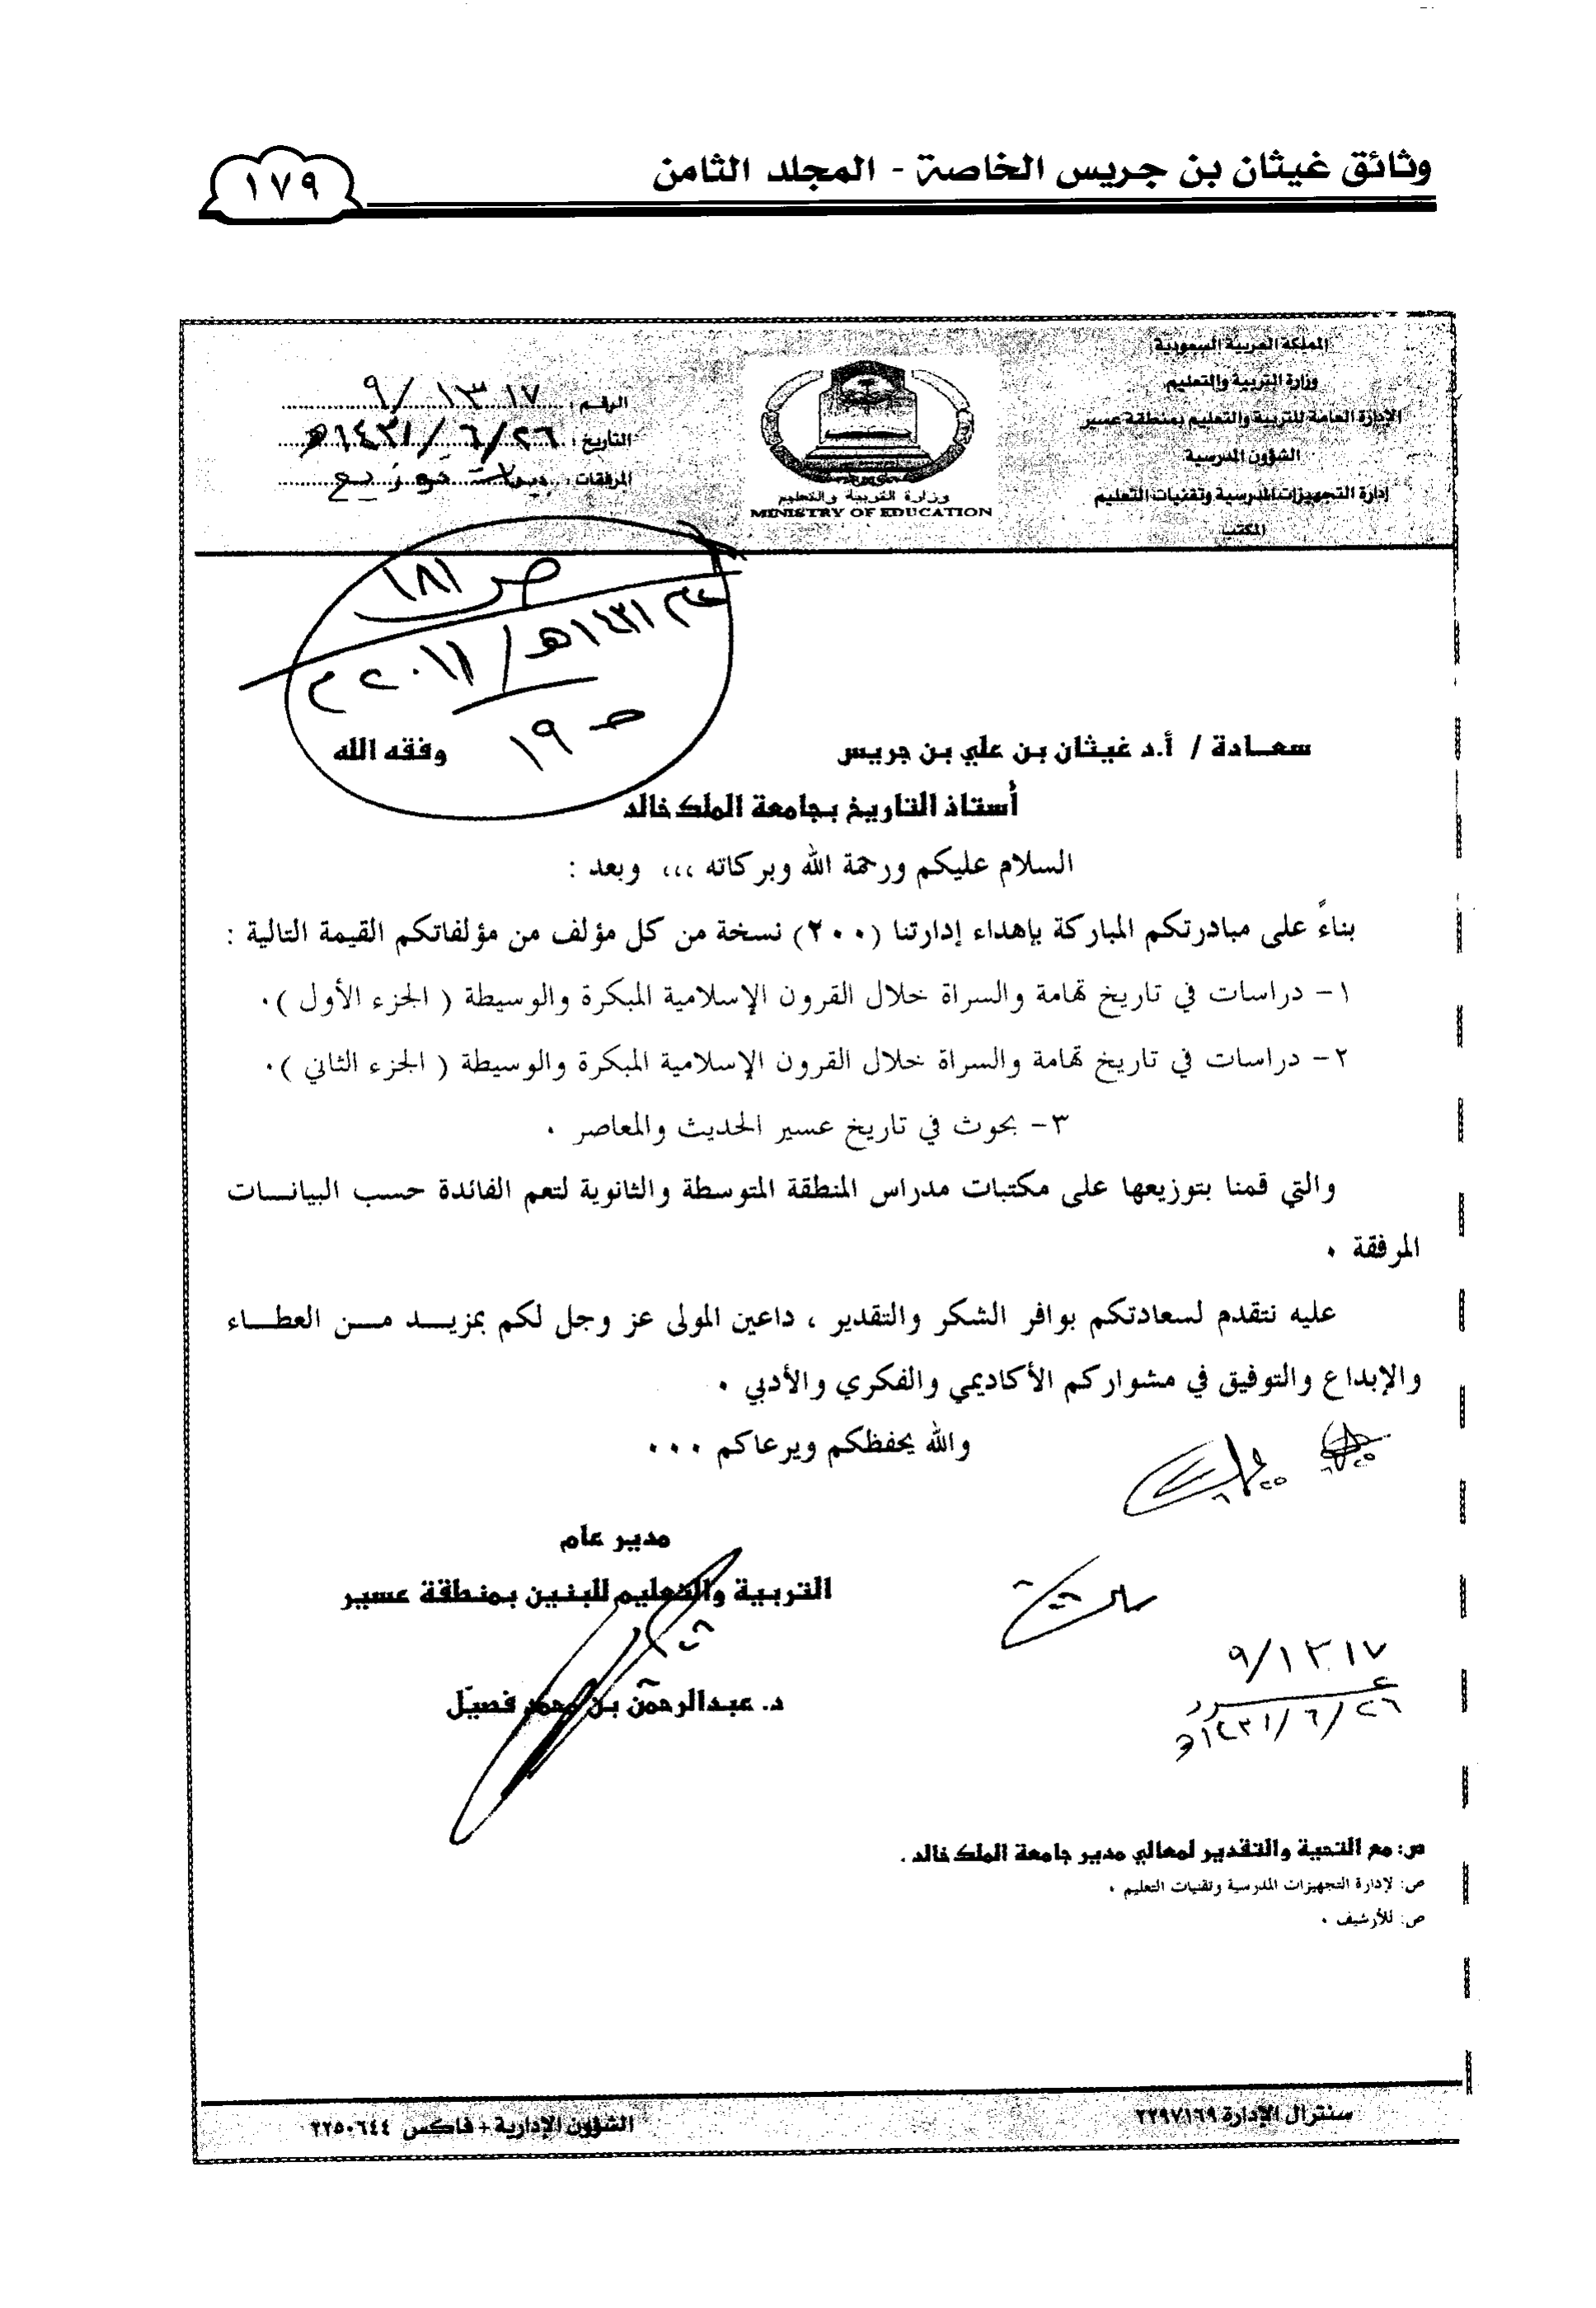 وثائق غيثان بن جريس الخاصة - المجلد الثامن
١٧٩
المملكة العربية السعودية
وزارة التربية والتعليم
الإدارة العامة للتربية والتعليم بمنطقة عسير
الشؤون المدرسية
إدارة التجهيزات المدرسية وتقنيات التعليم
المكتب
وزارة التربية والتعليم
MINISTRY OF EDUCATION
الرقم : ٩/١٣١٧
التاريخ : ٢٦/٦/١٤٣١هـ
المرفقات : بيانات توزيع
ص ١٨١
عام ١٤٣١هـ / ٢٠١١م
ص ١٩
سعادة / أ.د غيثان بن علي بن جريس وفقه الله
أستاذ التاريخ بجامعة الملك خالد
السلام عليكم ورحمة الله وبركاته ،،، وبعد :
بناءً على مبادرتكم المباركة بإهداء إدارتنا (٢٠٠) نسخة من كل مؤلف من مؤلفاتكم القيمة التالية :
١- دراسات في تاريخ تهامة والسراة خلال القرون الإسلامية المبكرة والوسيطة ( الجزء الأول ).
٢- دراسات في تاريخ تهامة والسراة خلال القرون الإسلامية المبكرة والوسيطة ( الجزء الثاني ).
٣- بحوث في تاريخ عسير الحديث والمعاصر .
والتي قمنا بتوزيعها على مكتبات مدراس المنطقة المتوسطة والثانوية لتعم الفائدة حسب البيانات
المرفقة .
عليه نتقدم لسعادتكم بوافر الشكر والتقدير ، داعين المولى عز وجل لكم بمزيد من العطاء
والإبداع والتوفيق في مشواركم الأكاديمي والفكري والأدبي .
والله يحفظكم ويرعاكم ...
مدير عام
التربية والتعليم للبنين بمنطقة عسير
د. عبدالرحمن بن محمد فصيل
٩/١٣١٧
٢٦/٦/١٤٣١هـ
ص: مع التحية والتقدير لمعالي مدير جامعة الملك خالد .
ص: لإدارة التجهيزات المدرسية وتقنيات التعليم .
ص: للأرشيف .
سنترال الإدارة ٢٢٩٧١٦٩
الشؤون الإدارية + فاكس ٢٢٥٠٦٤٤